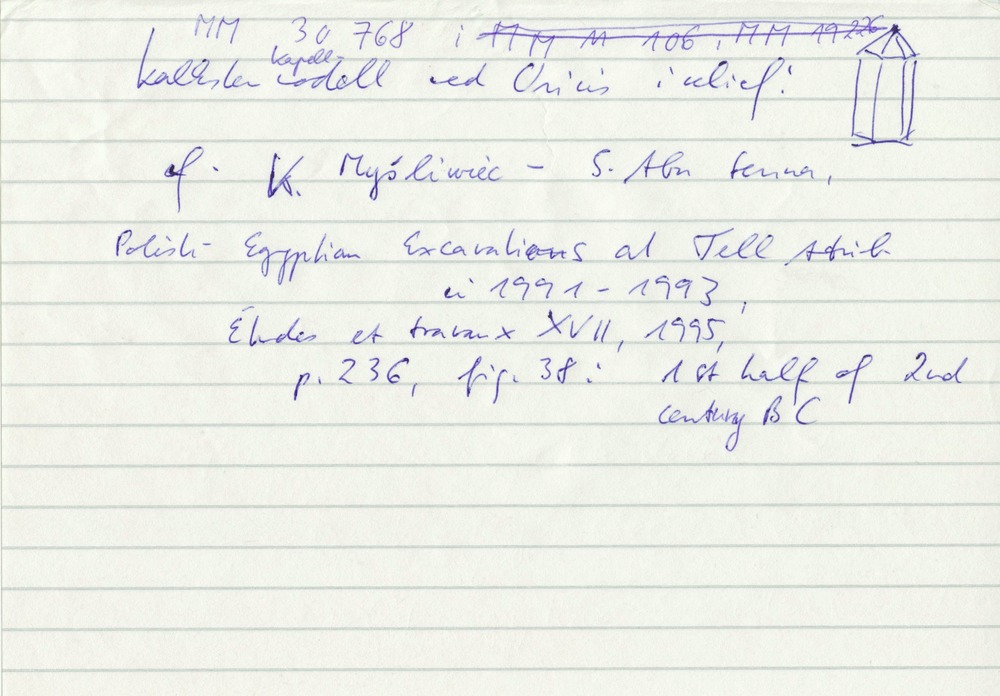 MM 30 768 i MM 11 106, MM 19226
kapell-
kalksten modell med Osiris i relief:
cf. K. Myśliwiec - S. Abu Senna,
Polish-Egyptian Excavations at Tell Atrib
in 1991-1993,
Études et travaux XVII, 1995,
p. 236, fig. 38: 1st half of 2nd
century BC